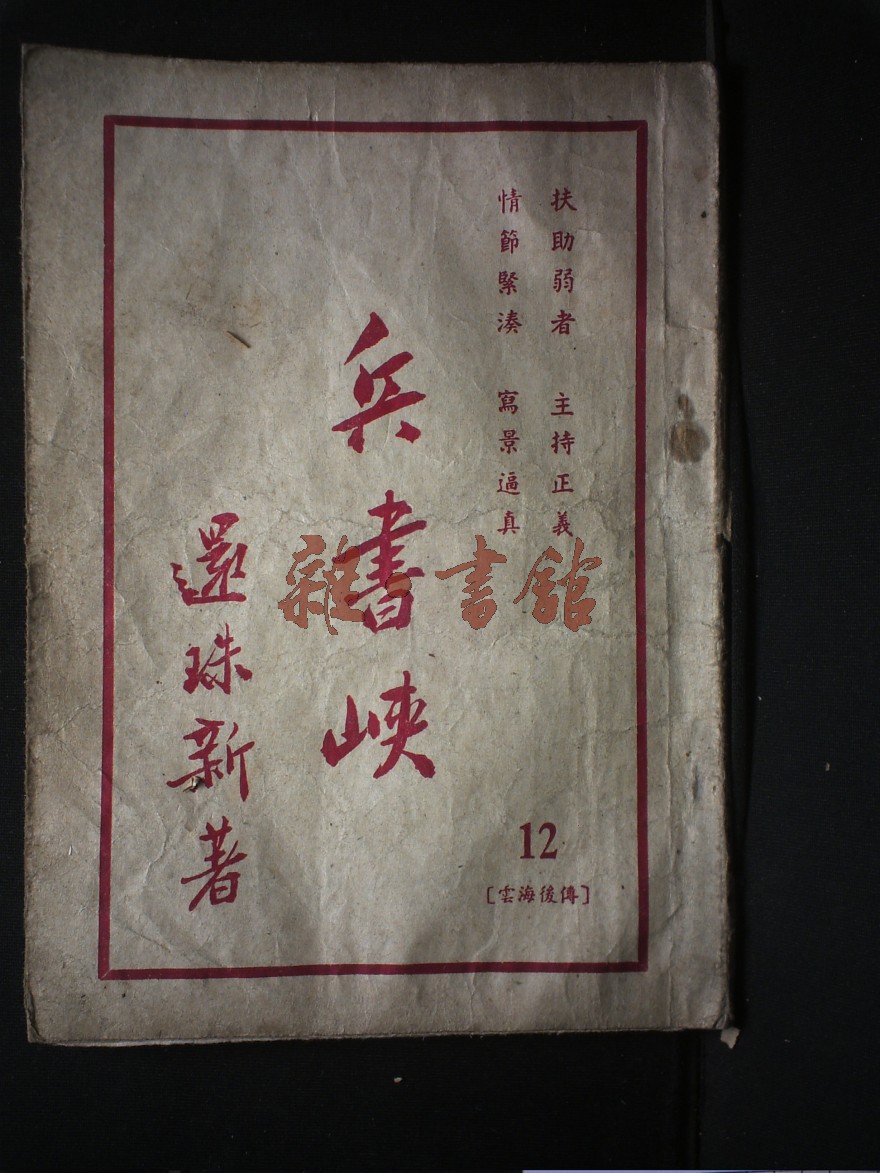 扶助弱者 主持正義
情節緊湊 寫景逼真
兵書峽
還珠新著
12
[雲海後傳]
雜·書館